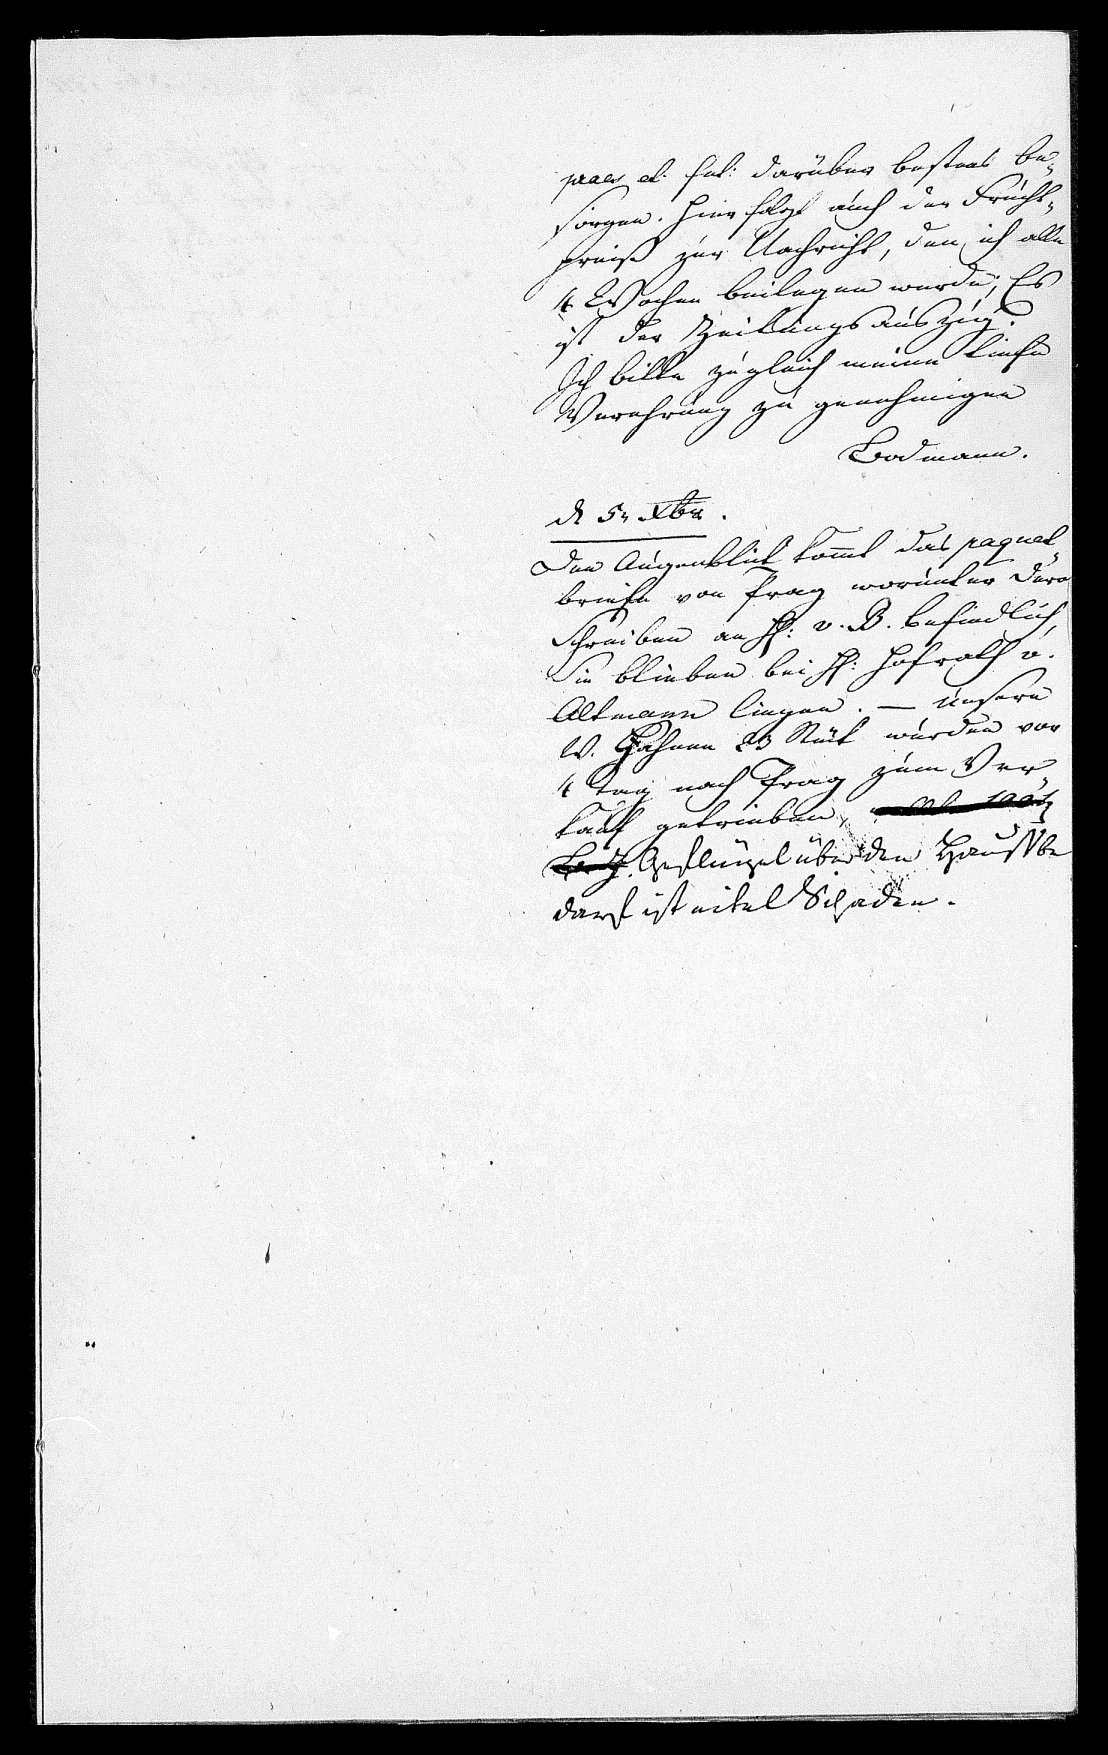 paar et: fut: darüber bestens be¬
sorgen. Hier folgt auch der Frücht¬
preiß zur Nachricht, den ich alle
4 Wochen beilegen werde; Es
ist der Zeitungsauszug.
Ich bitte zugleich meine tiefe
Verehrung zu genehmigen
Bodmann.
d 5n Xbr.
Den Augenblick kommt das paquet¬
briefe von Prag worunter dero
Schreiben an H: v. B. befindlich,
Sie blieben bei H: Hofrath v.
Altmann liegen. — unsere
W. Hahnen 23 Stük wurden vor
4 Tag nach Prag zum Ver¬
kauf getrieben,
Geflügel über den Haußbe
darf ist eitel Schaden.